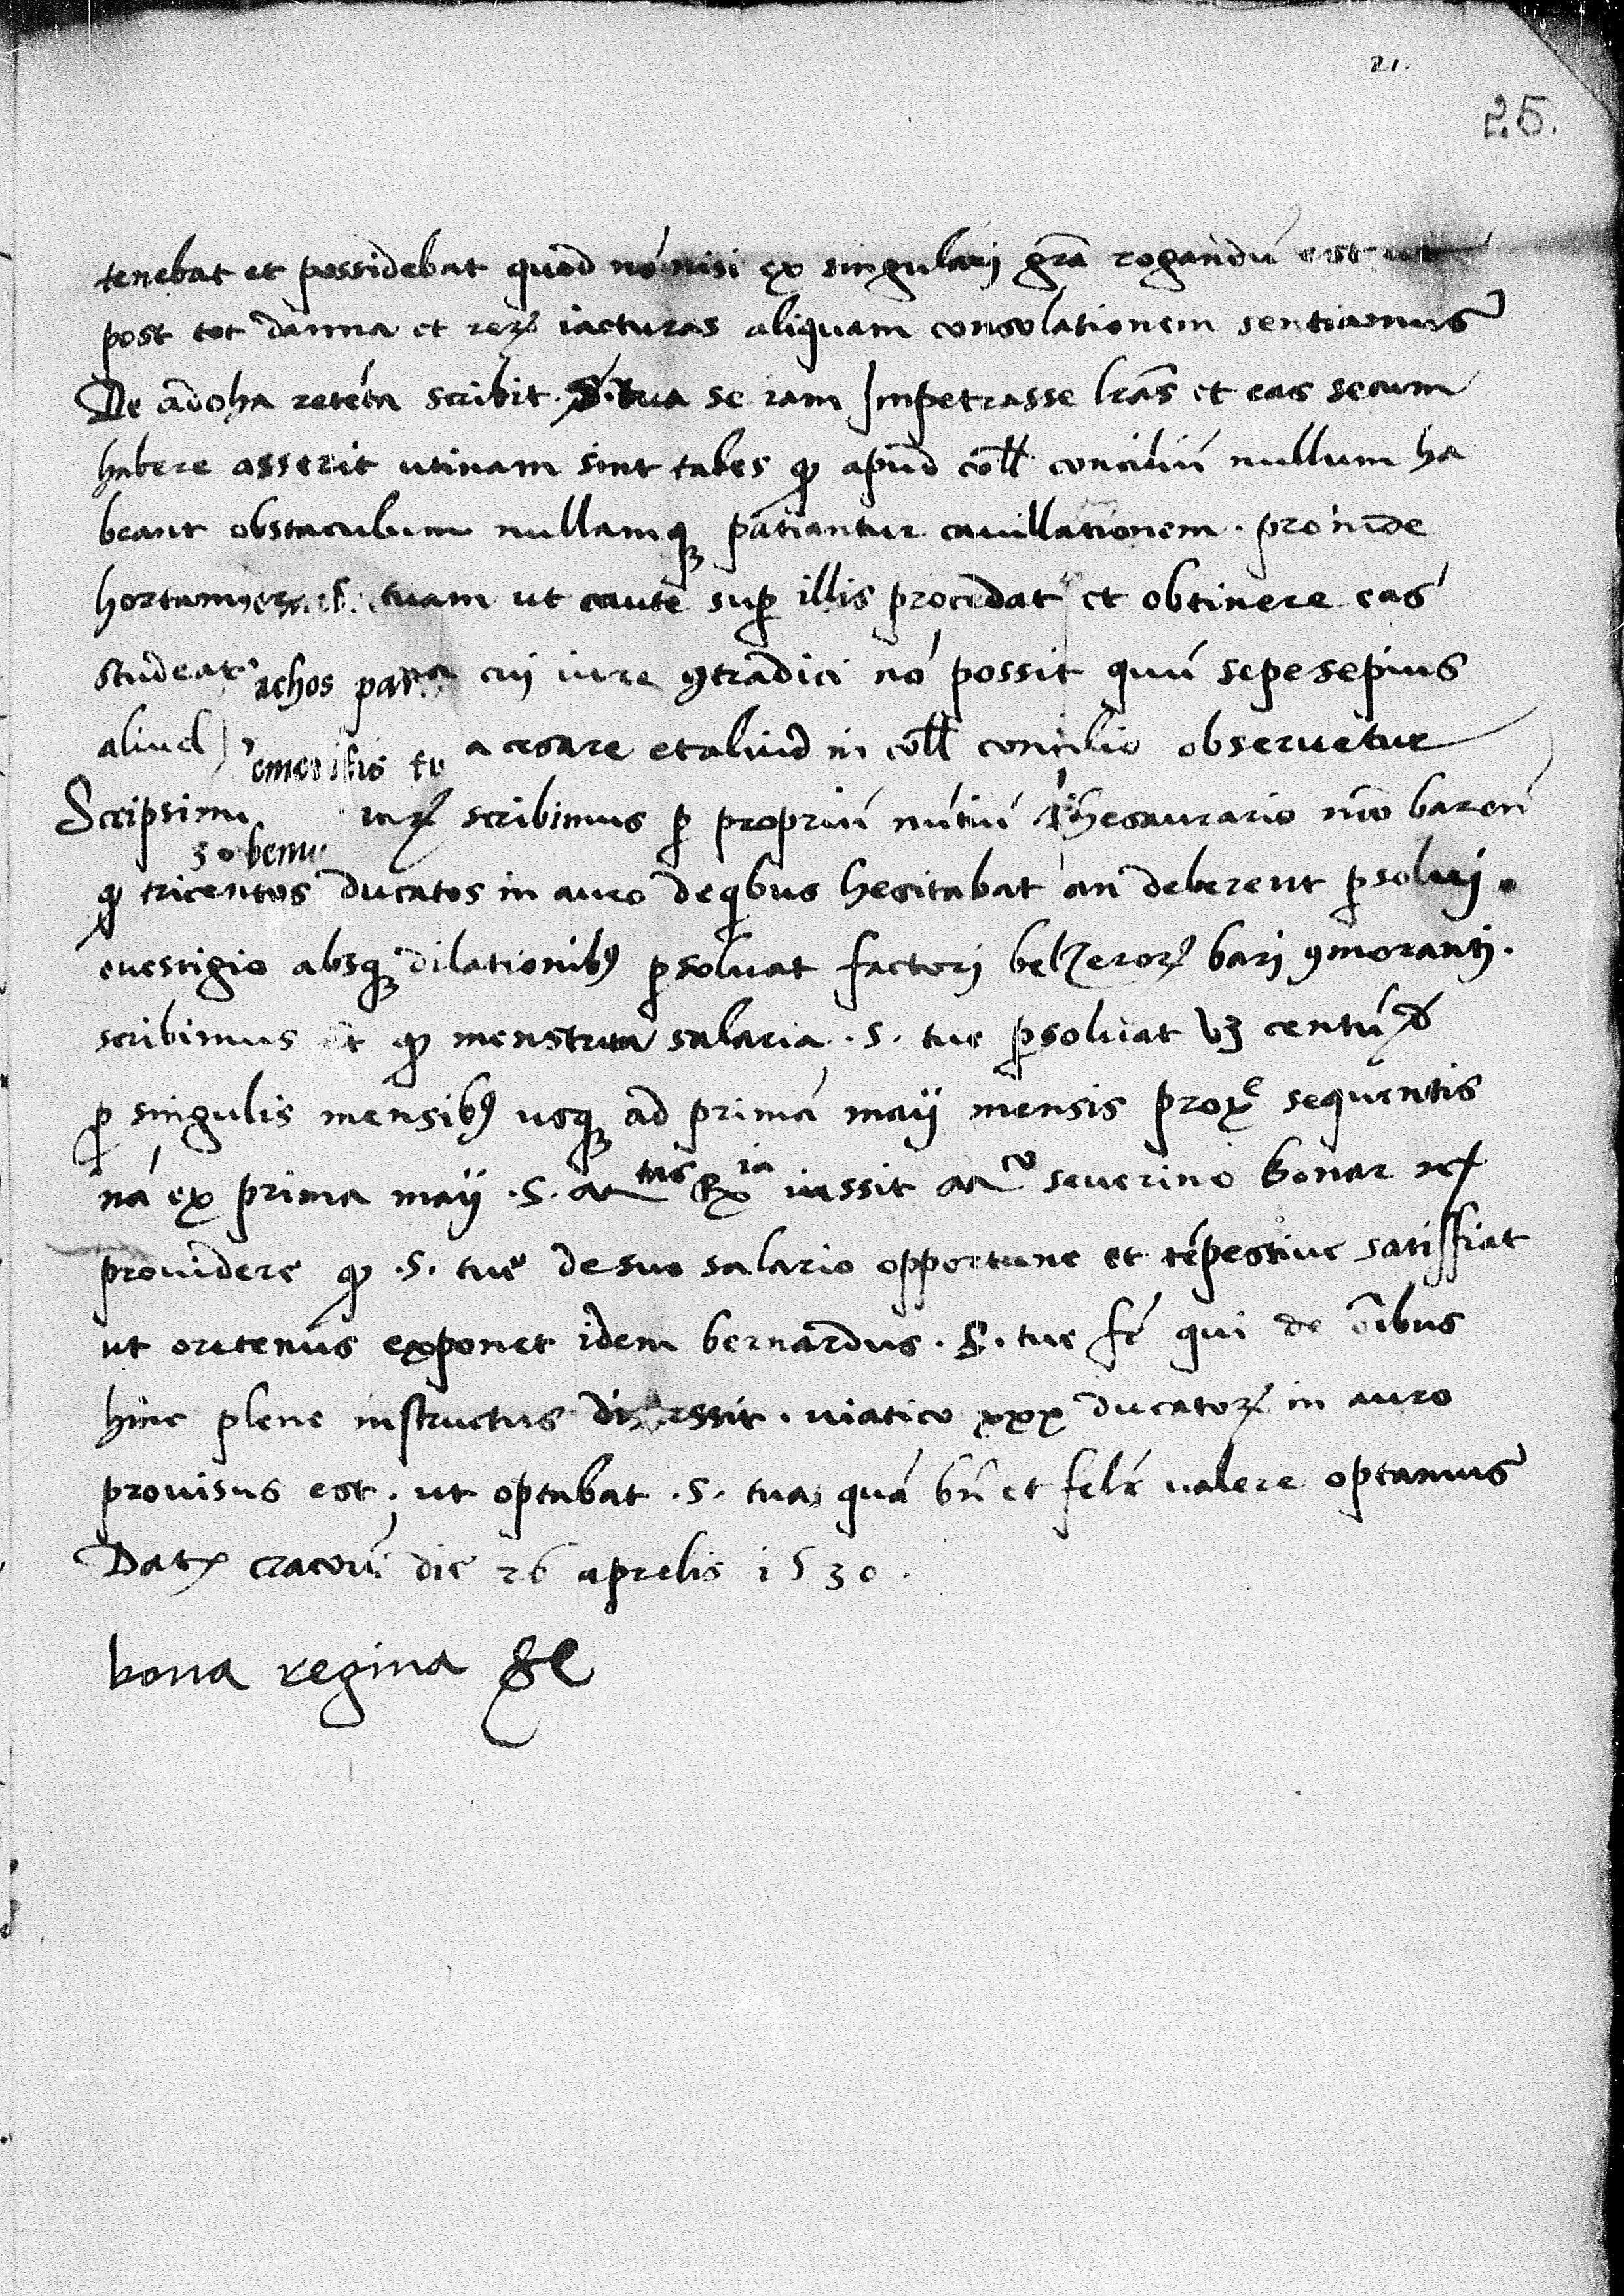 21.
25.
tenebat et possidebat quod nó nisi ex singularj grã rogandũ est ut
post tot damna et reꝝ iacturas aliquam consolationem sentiamus
De adoha reteta scribit .S. tua se iam Impetrasse lrãs et eas secum
habere asserit utinam sint tales ꝙ apud coll conciliũ nullum ha
beant obstaculum nullamqꝫ patiantur cauillationem . proinde
hortamur .S. tuam ut caute suꝑ illis procedat et obtinere eas
studeat cui iure ꝯtradici nó possit quũ sepesepius
achos
aliud a cesare et aliud in coll concilio obseruetur
Scripsim scribimus ꝑ propriũ nũtiũ Thesaurario nrõ baren
ꝙ tricentos ducatos in auro de qbus hesitabat an deberent ꝑsoluj .
euestigio absqꝫ dilationibꝰ ꝑsoluat factorj belzeroꝝ barj ꝯmorantj .
scribimus et ꝙ menstrua salaria . S . tue ꝑsoluat vꝫ centũ
ꝓ singulis mensibꝰ usqꝫ ad primã maij mensis proxᵉ sequentis
nã ex prima maij . S . Mtas Rxia iussit Mco seuerino bonar
prouidere ꝙ . S . tue de suo salario opportune et tẽpestiue satisfiat
ut oretenus exponet idem bernardus . S . tue fr qui de oĩbus
hinc plene instructus discessit . uiatico xxx ducatoꝝ in auro
prouisus est . ut optabat . S . tua quã bñ et felr ualere optamus
Datꝭ cracouie die 26 aprelis 1530 .
bona regina &c